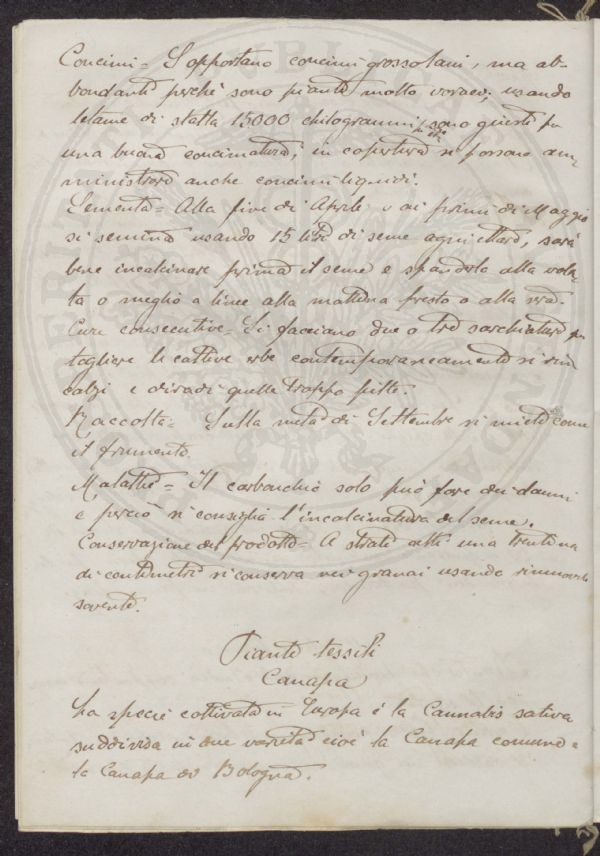 Concimi = Sopportano concimi grossolani, ma ab-
bondanti perché sono piante molto voraci, usando
letame di stalla 15000 chilogrammi p. ett. sono questi per
una buona concimatura, in copertura si possono am-
ministrare anche concimi liquidi.
Sementa = Alla fine di Aprile o ai primi di Maggio
si semina usando 15 litri di seme ogni ettaro, sarà
bene incalcinare prima il seme e spanderlo alla vola-
ta o meglio a linee alla mattina presto o alla sera.
Cure consecutive = Si facciano due o tre sarchiature per
togliere le cattive erbe contemporaneamente si rin
calzi e diradi quelle troppo fitte.
Raccolta = Sulla metà di Settembre si miete come
il frumento.
Malattie = Il carbonchio solo può fare dei danni
e perciò si consiglia l'incalcinatura del seme.
Conservazione del prodotto = A strati alti una trentina
di centimetri si conserva nei granai usando rimuoverlo
sovente.
Piante tessili
Canapa
La specie coltivata in Europa è la Cannabis sativa
suddivisa in due varietà cioè la Canapa comune e
la Canapa di Bologna.